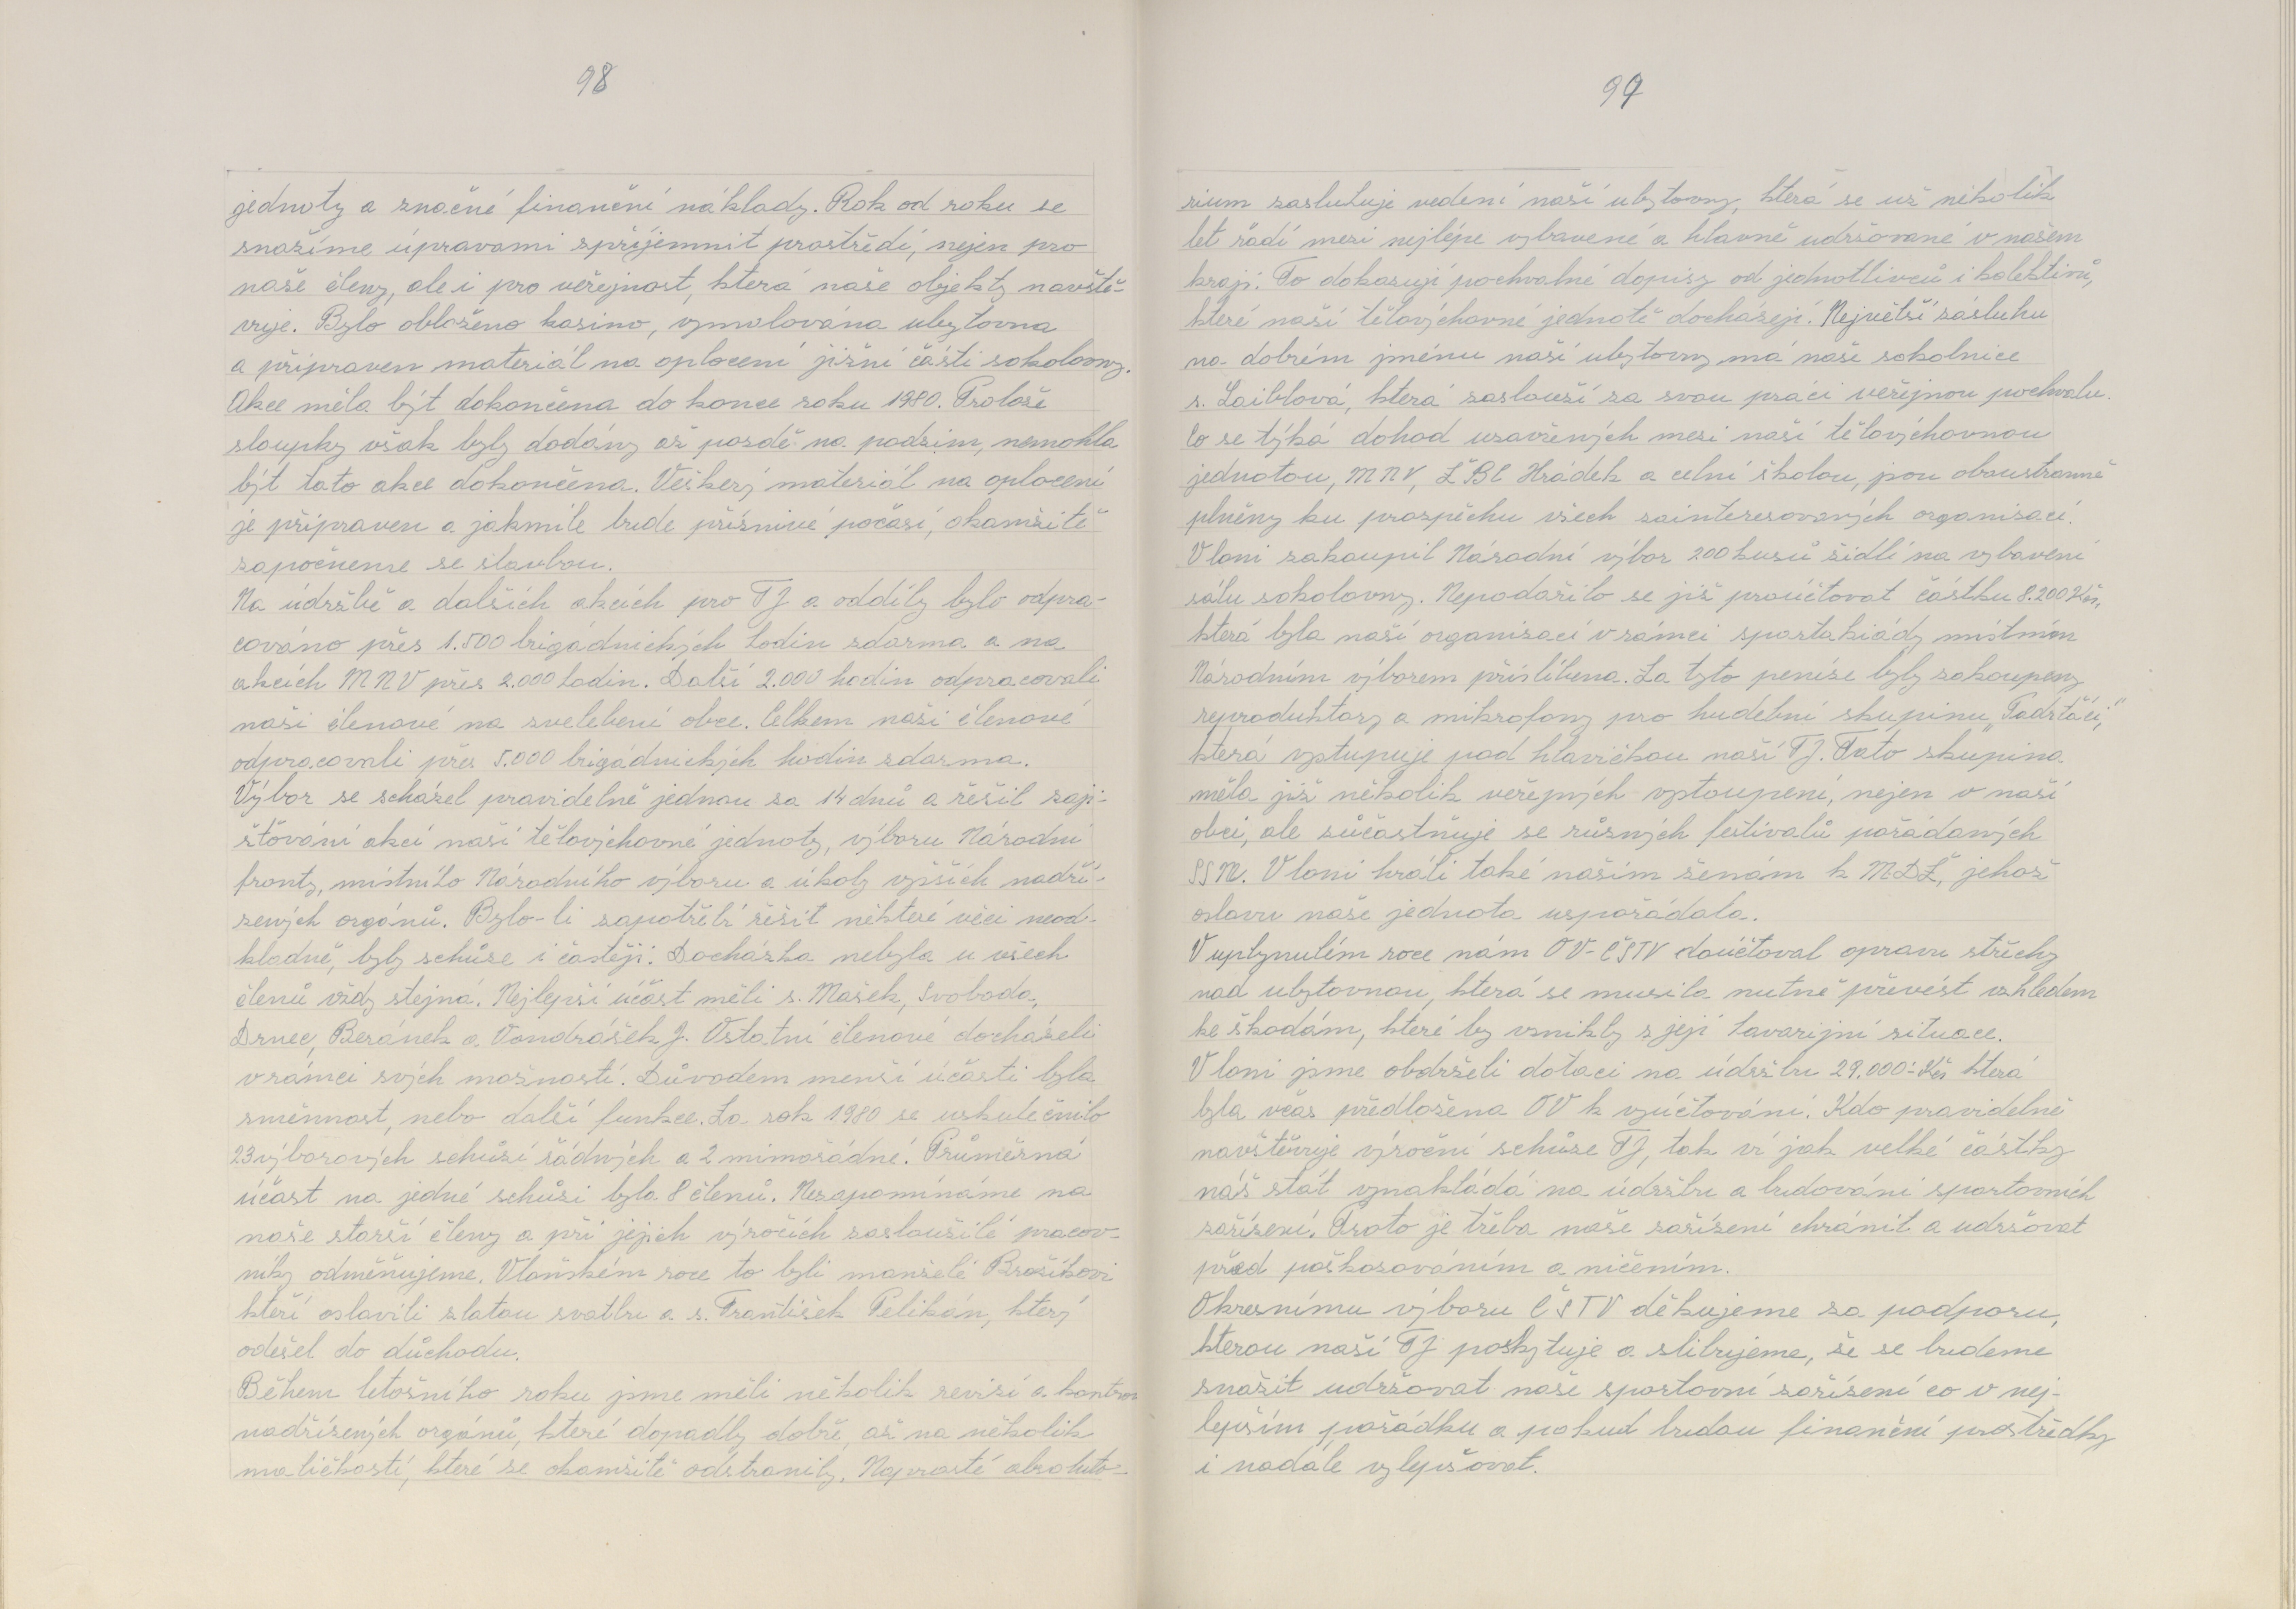 98
jednoty a značné finanční náklady. Rok od roku se
snažíme úpravami zpříjemnit prostředí, nejen pro
naše členy, ale i pro veřejnost, která naše objekty navště-
vuje. Bylo obloženo kasino, vymalována ubytovna
a připraven materiál na oplocení jižní části sokolovny.
Akce měla být dokončena do konce roku 1980. Protože
sloupky však byly dodány až pozdě na podzim, nemohla
být tato akce dokončena. Veškerý materiál na oplocení
je připraven a jakmile bude příznivé počasí, okamžitě
započneme se stavbou.
Na údržbě a dalších akcích pro TJ a oddíly bylo odpra-
cováno přes 1.500 brigádnických hodin zdarma a na
akcích MNV přes 2.000 hodin. Další 2.000 hodin odpracovali
naši členové na zvelebení obce. Celkem naši členové
odpracovali přes 5.000 brigádnických hodin zdarma.
Výbor se scházel pravidelně jednou za 14 dnů a řešil zaji-
šťování akcí naší tělovýchovné jednoty, výboru Národní
fronty, místního Národního výboru a úkoly vyšších nadří-
zených orgánů. Bylo-li zapotřebí řešit některé věci neod-
kladně, byly schůze i častěji. Docházka nebyla u všech
členů vždy stejná. Nejlepší účast měli s. Mašek, Svoboda,
Drnec, Beránek a Vondrášek J. Ostatní členové docházeli
v rámci svých možností. Důvodem menší účasti byla
směnnost, nebo další funkce. Za rok 1980 se uskutečnilo
23 výborových schůzí řádných a 2 mimořádné. Průměrná
účast na jedné schůzi byla 8 členů. Nezapomínáme na
naše starší členy a při jejich výročích zasloužilé pracov-
níky odměňujeme. V loňském roce to byli manželé Brožíkovi
kteří oslavili zlatou svatbu a s. František Pelikán, který
odešel do důchodu.
Během letošního roku jsme měli několik revizí a kontrol
nadřízených orgánů, které dopadly dobře, až na několik
maličkostí, které se okamžitě odstranily. Naprosté absoluto-
99
rium zasluhuje vedení naší ubytovny, která se už několik
let řadí mezi nejlépe vybavené a hlavně udržované v našem
kraji. To dokazují pochvalné dopisy od jednotlivců i kolektivů,
které naší tělovýchovné jednotě docházejí. Největší zásluhu
na dobrém jménu naší ubytovny má naše sokolnice
s. Laiblová, která zaslouží za svou práci veřejnou pochvalu.
Co se týká dohod uzavřených mezi naší tělovýchovnou
jednotou, MNV, ZBČ Hrádek a celní školou, jsou oboustranně
plněny ku prospěchu všech zainteresovaných organizací.
V loni zakoupil Národní výbor 200 kusů židlí na vybavení
sálu sokolovny. Nepodařilo se již proúčtovat částku 8.200 Kčs,
která byla naší organizací v rámci spartakiády místním
Národním výborem přislíbena. Za tyto peníze byly zakoupeny
reproduktory a mikrofony pro hudební skupinu „Tadrťáci,"
která vystupuje pod hlavičkou naší TJ. Tato skupina
měla již několik veřejných vystoupení, nejen v naší
obci, ale zúčastňuje se různých festivalů pořádaných
SSM. V loni hráli také našim ženám k MDŽ, jehož
oslavu naše jednota uspořádala.
V uplynulém roce nám OV-ČSTV doúčtoval opravu střechy
nad ubytovnou, která se musila nutně převést vzhledem
ke škodám, které by vznikly z její havarijní situace.
V loni jsme obdrželi dotaci na údržbu 29.000.- Kčs která
byla včas předložena OV k vyúčtování. Kdo pravidelně
navštěvuje výroční schůze TJ, tak ví jak velké částky
náš stát vynakládá na údržbu a budování sportovních
zařízení. Proto je třeba naše zařízení chránit a udržovat
před poškozováním a ničením.
Okresnímu výboru ČSTV děkujeme za podporu,
kterou naší TJ poskytuje a slibujeme, že se budeme
snažit udržovat naše sportovní zařízení co v nej-
lepším pořádku a pokud budou finanční prostředky
i nadále vylepšovat.